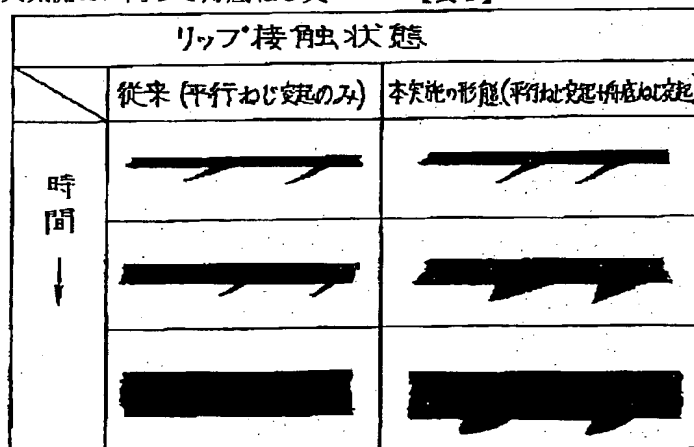 リップ接触状態
従来 (平行ねじ突起のみ)
本実施の形態(平行ねじ突起+舟底ねじ突起
時間